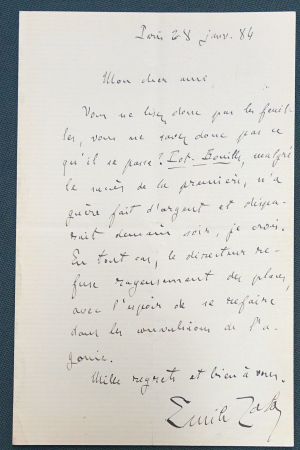 Paris 28 janv. 84
Mon cher ami
Vous ne lisez donc pas les feuil-
les, vous ne savez donc pas ce
qu'il se passe? Pot-Bouille, malgré
le succès de la première, n'a
guère fait d'argent et dispa-
rait demain soir, je crois.
En tout cas, le directeur re-
fuse rageusement des places,
avec l'espoir de se refaire
dans les convulsions de l'a-
gonie.
Mille regrets et bien à vous.
Emile Zola